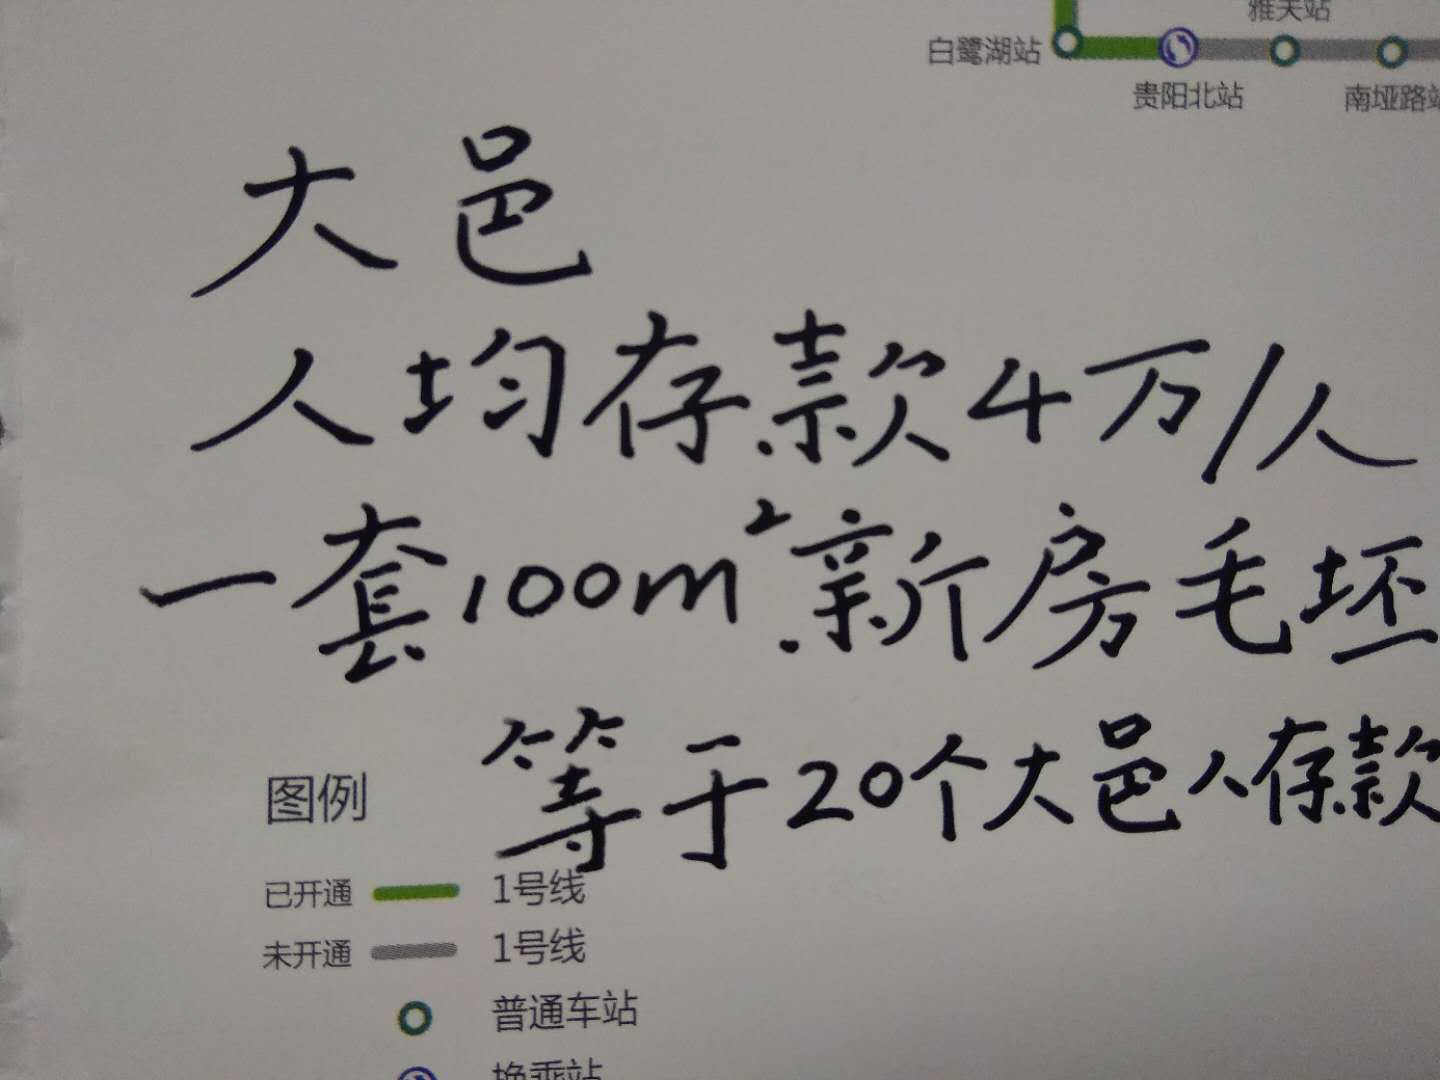 雅关站
白鹭湖站
贵阳北站
南垭路站
大邑
人均存款4万/人
一套100m².新房毛坯
等于20个大邑人存款
图例
已开通 1号线
未开通 1号线
普通车站
换乘站